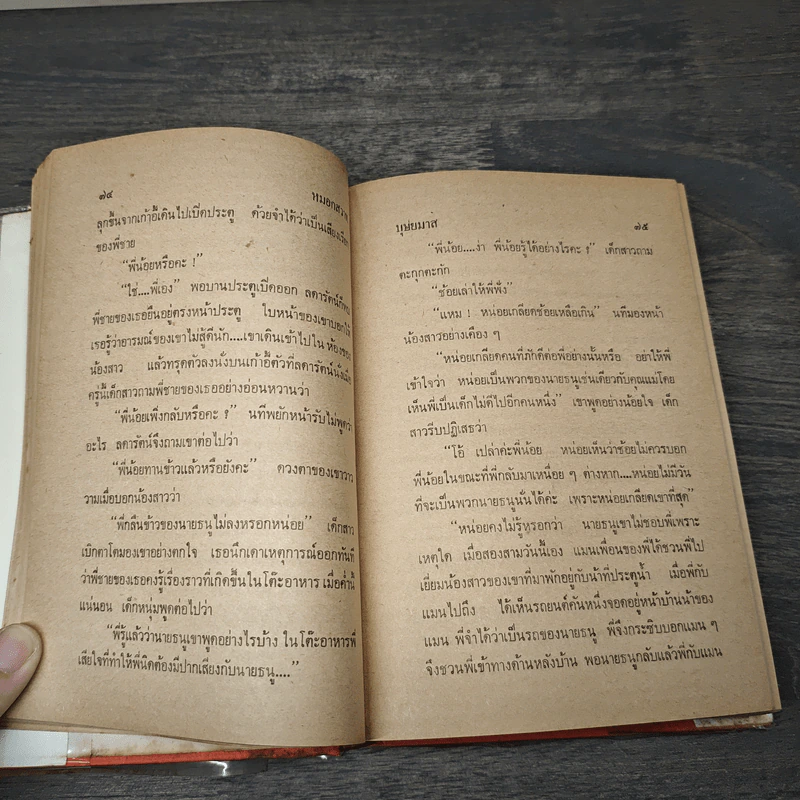 ๗๔
หมอกสวาท
ลุกขึ้นจากเก้าอี้เดินไปเปิดประตู ด้วยจำได้ว่าเป็นเสียงเรียก
ของพี่ชาย
“พี่น้อยหรือคะ !”
“ใช่....พี่เอง” พอบานประตูเปิดออก ลดารัตน์ก็พบ
พี่ชายของเธอยืนอยู่ตรงหน้าประตู ใบหน้าของเขาบอกให้
เธอรู้ว่าอารมณ์ของเขาไม่สู้ดีนัก....เขาเดินเข้าไปใน ห้องของ
น้องสาว แล้วทรุดตัวลงนั่งบนเก้าอี้ตัวที่ลดารัตน์นั่งเมื่อ
ครู่นี้เด็กสาวถามพี่ชายของเธออย่างอ่อนหวานว่า
“พี่น้อยเพิ่งกลับหรือคะ ?” นทีพยักหน้ารับไม่พูดว่า
อะไร ลดารัตน์จึงถามเขาต่อไปว่า
“พี่น้อยทานข้าวแล้วหรือยังคะ” ดวงตาของเขาวาว
วามเมื่อบอกน้องสาวว่า
“พี่กลืนข้าวของนายธนูไม่ลงหรอกหน่อย” เด็กสาว
เบิกตาโตมองเขาอย่างตกใจ เธอนึกเดาเหตุการณ์ออกทันที
ว่าพี่ชายของเธอคงรู้เรื่องราวที่เกิดขึ้นในโต๊ะอาหาร เมื่อค่ำนี้
แน่นอน เด็กหนุ่มพูดต่อไปว่า
“พี่รู้แล้วว่านายธนูเขาพูดอย่างไรบ้าง ในโต๊ะอาหารพี่
เสียใจที่ทำให้พี่นิดต้องมีปากเสียงกับนายธนู....”
บุษยมาส
๗๕
“พี่น้อย....ง่า พี่น้อยรู้ได้อย่างไรคะ ?” เด็กสาวถาม
ตะกุกตะกัก
“ช้อยเล่าให้พี่ฟัง”
“แหม ! หน่อยเกลียดช้อยเหลือเกิน” นทีมองหน้า
น้องสาวอย่างเคือง ๆ
“หน่อยเกลียดคนที่ภักดีต่อพี่อย่างนั้นหรือ อย่าให้พี่
เข้าใจว่า หน่อยเป็นพวกของนายธนูเช่นเดียวกับคุณแม่โดย
เห็นพี่เป็นเด็กไม่ดีไปอีกคนหนึ่ง” เขาพูดอย่างน้อยใจ เด็ก
สาวรีบปฏิเสธว่า
“โอ้ เปล่าค่ะพี่น้อย หน่อยเห็นว่าช้อยไม่ควรบอก
พี่น้อยในขณะที่พี่กลับมาเหนื่อย ๆ ต่างหาก....หน่อยไม่มีวัน
ที่จะเป็นพวกนายธนูนั่นได้ค่ะ เพราะหน่อยเกลียดเขาที่สุด”
“หน่อยคงไม่รู้หรอกว่า นายธนูเขาไม่ชอบพี่เพราะ
เหตุใด เมื่อสองสามวันนี้เอง แมนเพื่อนของพี่ได้ชวนพี่ไป
เยี่ยมน้องสาวของเขาที่มาพักอยู่กับน้าที่ประตูน้ำ เมื่อพี่กับ
แมนไปถึง ได้เห็นรถยนต์คันหนึ่งจอดอยู่หน้าบ้านน้าของ
แมน พี่จำได้ว่าเป็นรถของนายธนู พี่จึงกระซิบบอกแมน ๆ
จึงชวนพี่เข้าทางด้านหลังบ้าน พอนายธนูกลับแล้วพี่กับแมน